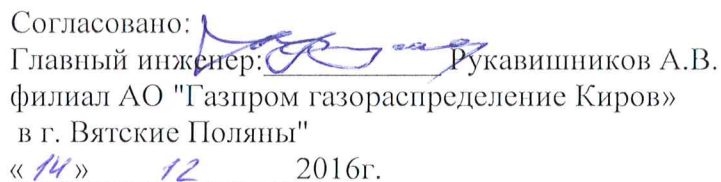 Согласовано:
Главный инженер:____________Рукавишников А.В.
филиал АО "Газпром газораспределение Киров»
в г. Вятские Поляны"
« 14 » 12 2016г.